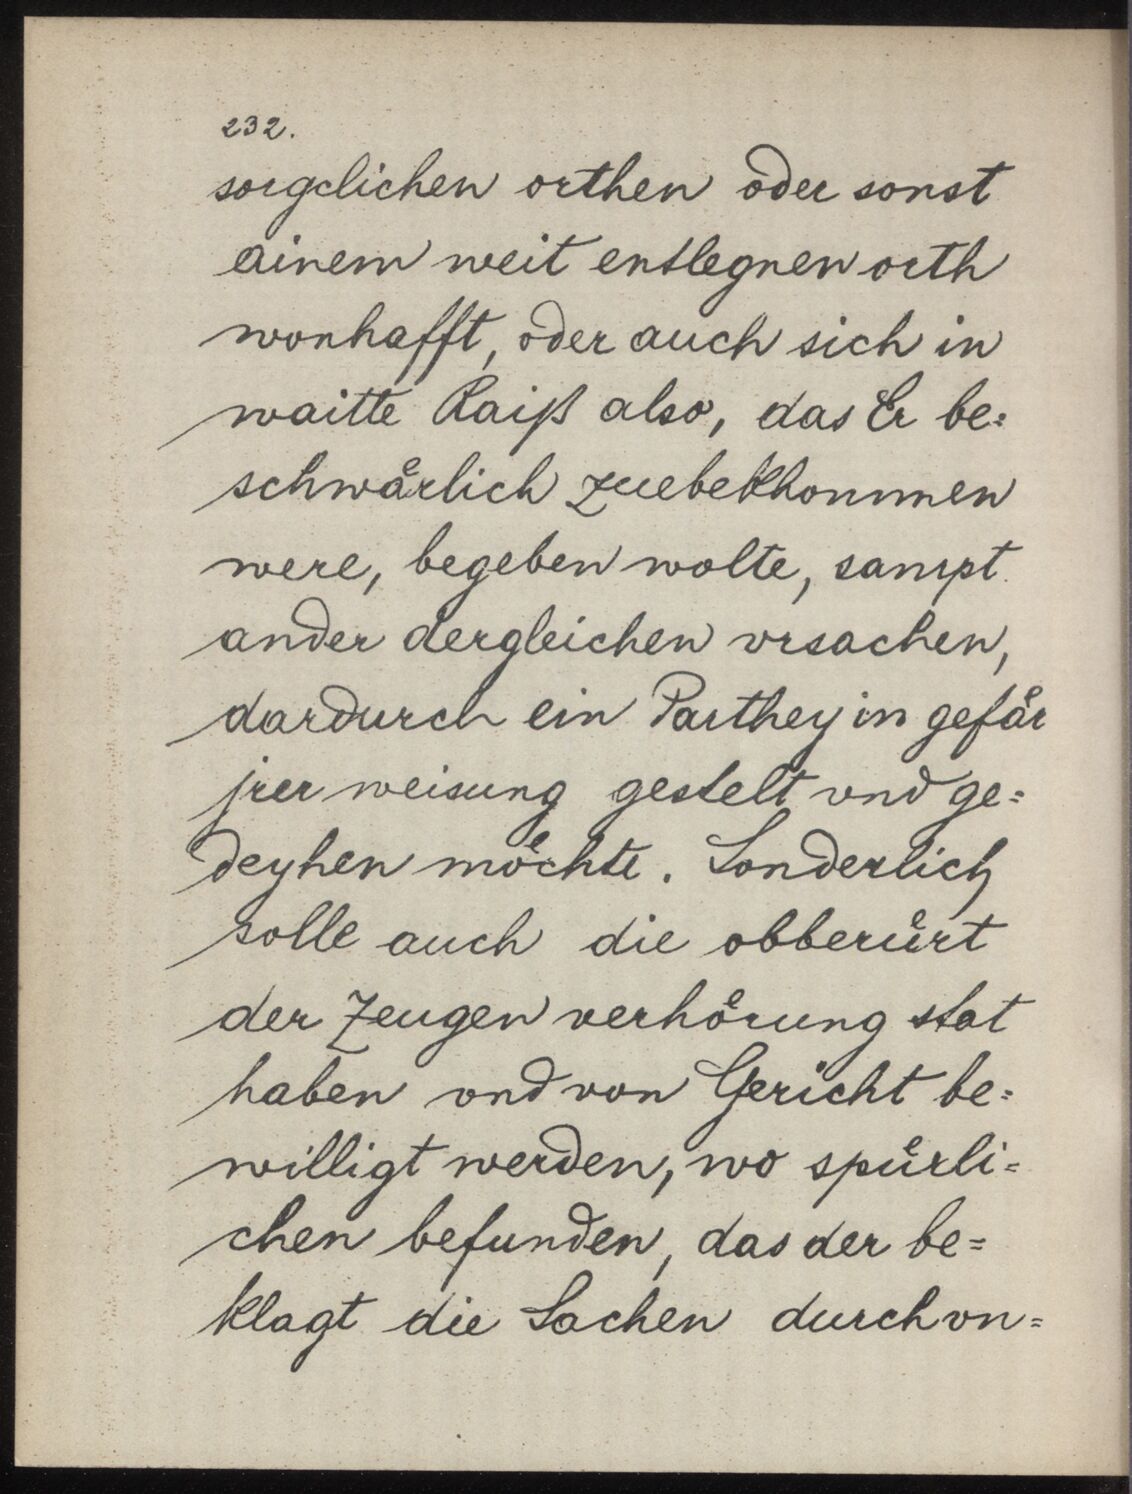 232.
sorgclichen orthen oder sonst
ainem weit entlegnen orth
wonhafft, oder auch sich in
waitte Raiß also, das Er be=
schwaͤrlich zuebekhommen
were, begeben wolte, sampt
ander dergleichen vrsachen,
dardurch ein Parthey in gefaͤr
jrer weisung gestelt vnd ge=
deyhen moͤchte. Sonderlich
solle auch die obberuͤrt
der Zeugen verhoͤrung stat
haben vnd von Gericht be=
willigt werden, wo spuͤrli=
chen befunden, das der be=
klagt die Sachen durch vn=